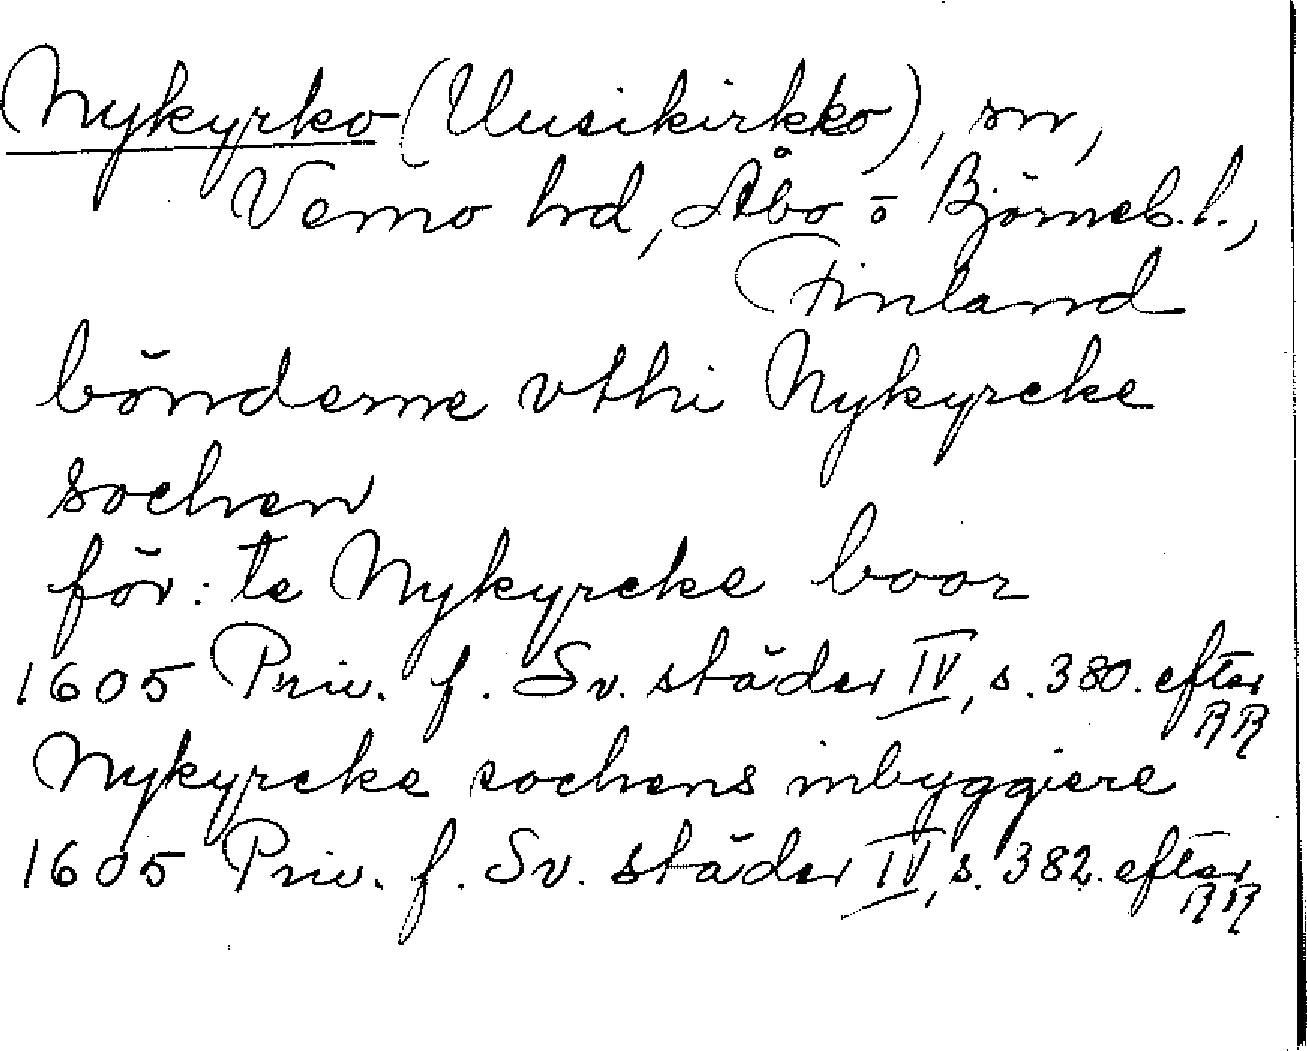 Nykyrko (Uusikirkko), sn,
Vemo hd, Åbo o Björneb. l.,
Finland
bönderne vthi Nykyrcke
sochen
för: te Nykyrcke boor
1605 Priv. f. Sv. städer IV, s. 380. efter
RR
Nykyrcke sochens inbyggiere
1605 Priv. f. Sv. städer IV, s. 382. efter
RR